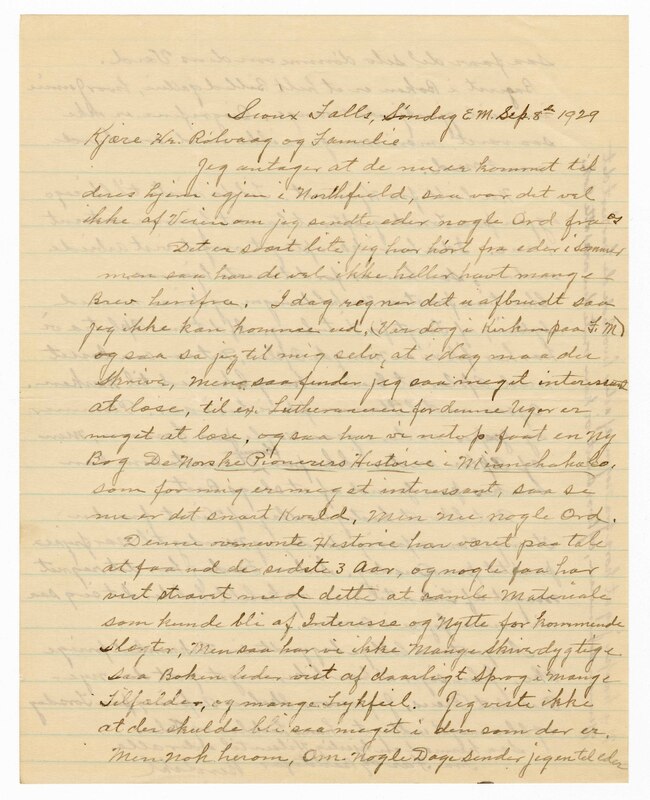 Sioux Falls, Søndag E.M. Sep. 8th 1929
Kjære Hr. Rölvaag og Famelie
Jeg antager at de nu er kommet til
deres hjem igjen i Northfield, saa var det vel
ikke af Veien om jeg sendte eder nogle Ord fra os
Det er svært lite jeg har hört fra eder i Sommer
men saa har de vel ikke heller havt mange
Brev herifra. I dag regner det uafbrudt saa
jeg ikke kan komme ud, (Var dog i Kirken paa F.M)
og saa sa jeg til mig selv, at i dag maa du
skrive, men saa finder jeg saa meget interessant
at læse, til ex. Lutheraneren for denne Uge er
meget at læse, og saa har vi netop faat en Ny
Bog De Norske Pionerers Historie i Minnehaha Co.
som for mig er meget interessant, saa se
nu er det snart Kveld, Men nu nogle Ord.
Denne ovnævnte Historie har været paa tale
at faa ud de sidste 3 Aar, og nogle faa har
vist strævt med dette at samle Materiale
som kunde bli af Interesse og Nytte for kommende
Slegter, Men saa har vi ikke Mange skrivedygtige
saa Boken lider vist af daarligt Sprog i mange
Tilfælder, og mange Trykfeil. Jeg viste ikke
at der skulde bli saa meget i den som der er.
Men Nok herom, Om nogle Dage sender jeg en til eder